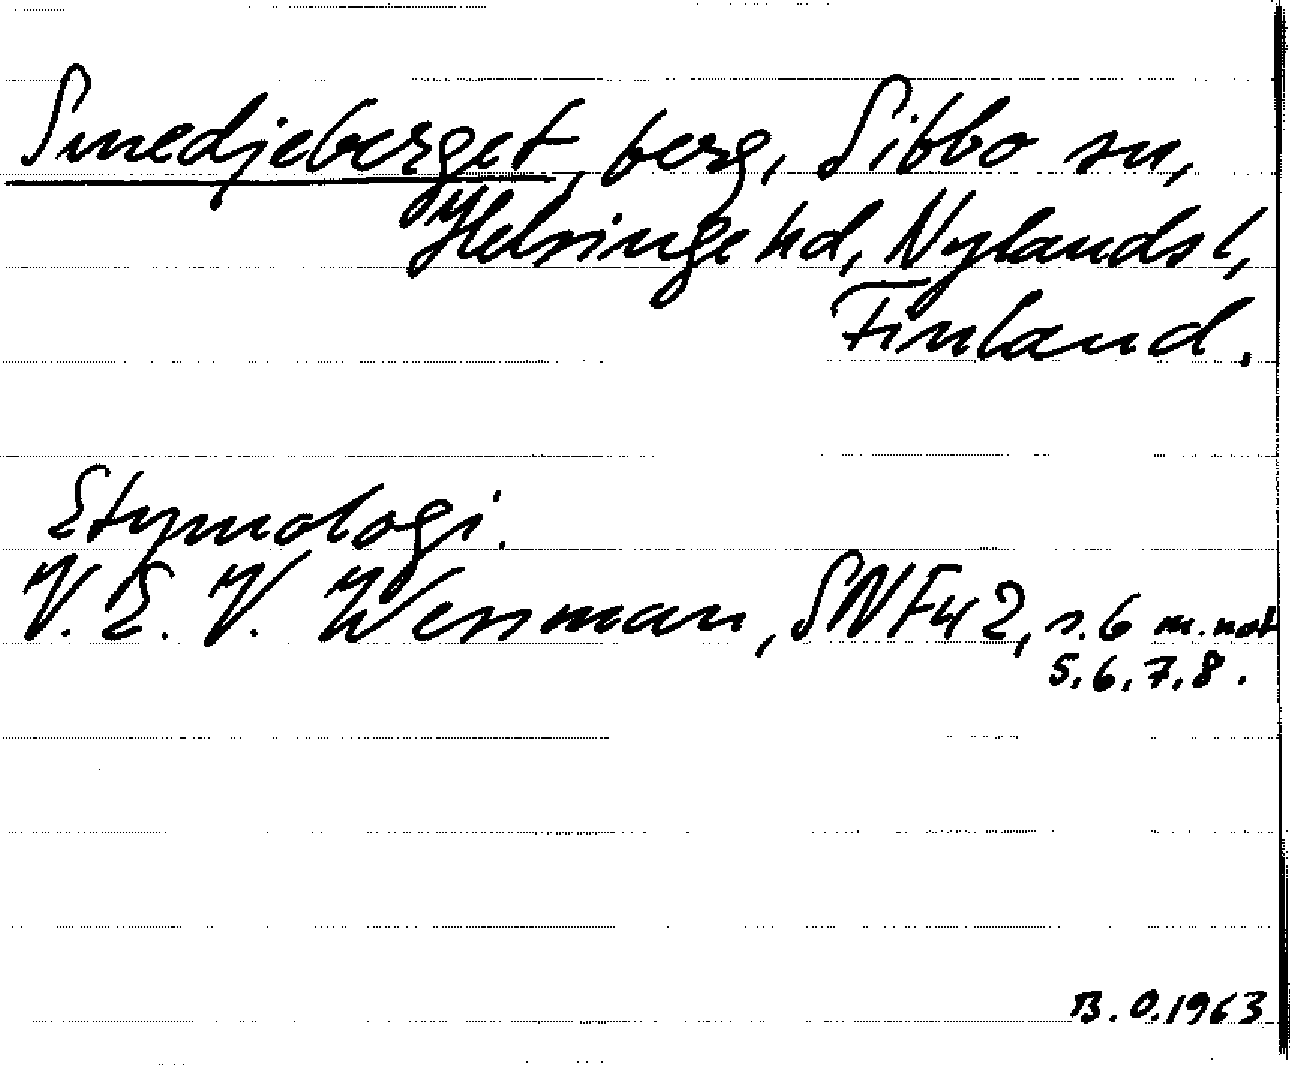 Smedjeberget, berg, Sibbo sn,
Helsinge hd, Nylands l,
Finland.
Etymologi.
V. E. V. Wessman, SNF 42, s. 6 m. not
5. 6. 7. 8.
B. O. 1963